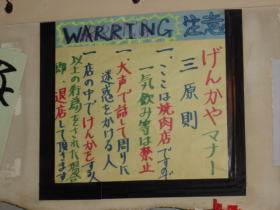 WARRING 注意
げんかやマナー
三原則
一、ここは焼肉店ですので
一気飲み等は禁止
一、大声で話して周りに
迷惑をかける人
一、店の中でけんかをする人
以上の行為をされた場合
即、退店して頂きます